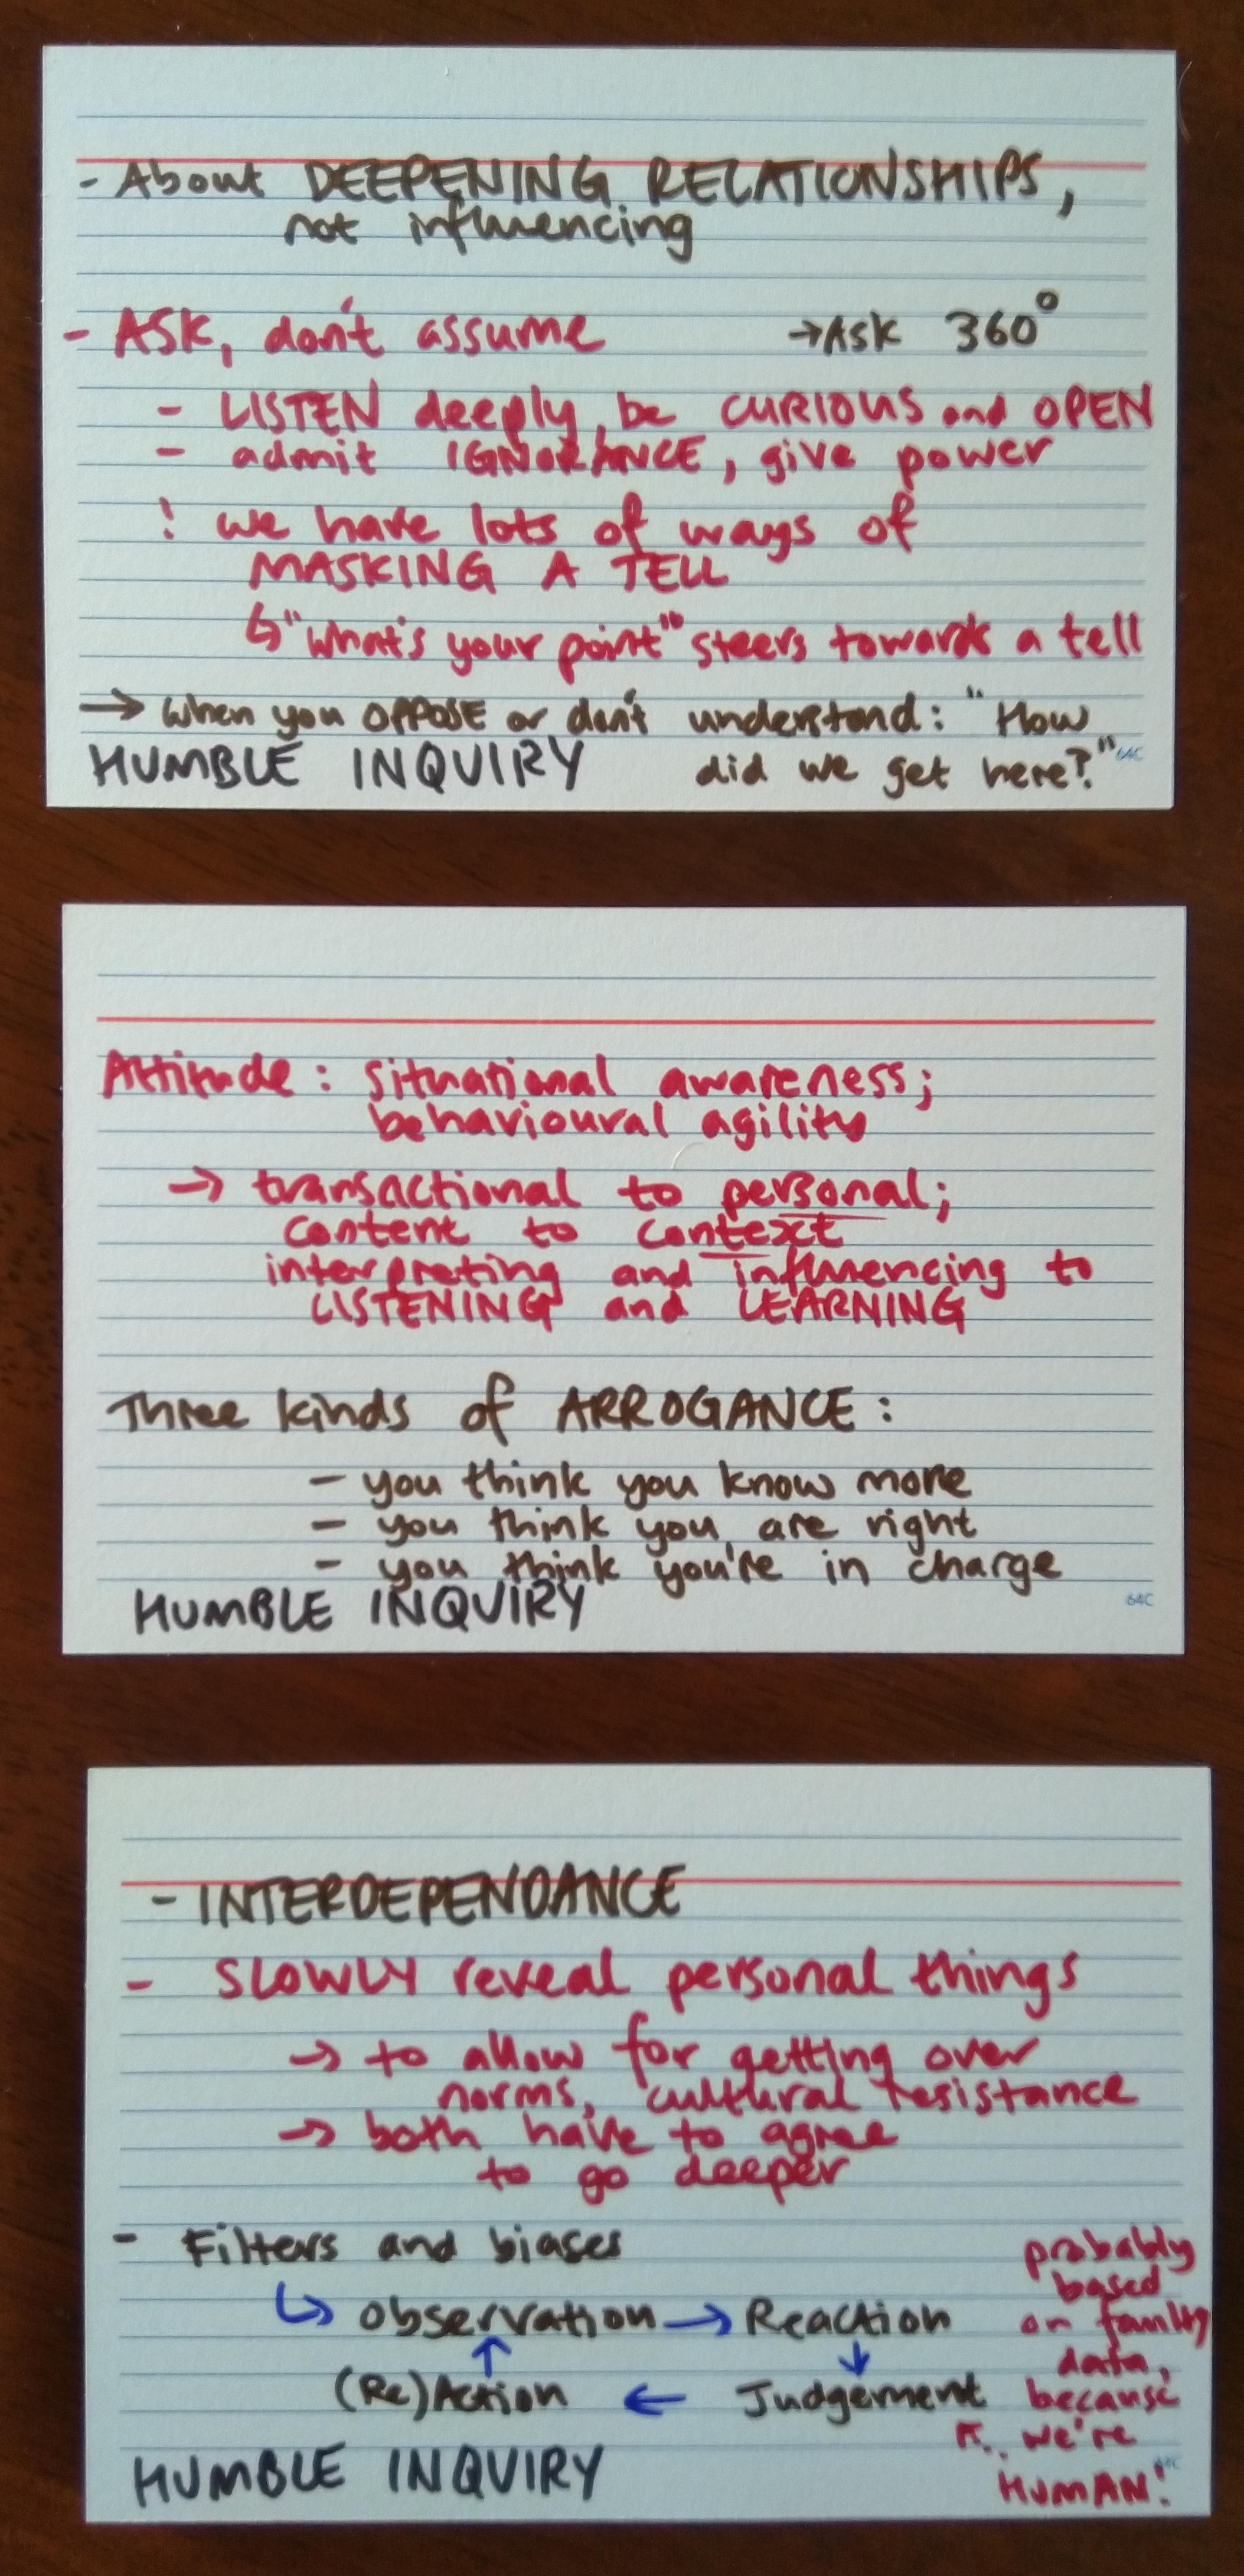 - About DEEPENING RELATIONSHIPS,
not influencing
- ASK, don't assume →Ask 360°
- LISTEN deeply, be CURIOUS and OPEN
- admit IGNORANCE, give power
! we have lots of ways of
MASKING A TELL
↳"What's your point" steers towards a tell
→ When you OPPOSE or don't understand: "How
did we get here?"
HUMBLE INQUIRY
64C
Attitude: situational awareness;
behavioural agility
→ transactional to personal;
content to context
interpreting and influencing to
LISTENING and LEARNING
Three kinds of ARROGANCE:
- you think you know more
- you think you are right
- you think you're in charge
HUMBLE INQUIRY
64C
- INTERDEPENDANCE
- SLOWLY reveal personal things
→ to allow for getting over
norms, cultural resistance
→ both have to agree
to go deeper
- Filters and biases
↳ Observation → Reaction
↑ ↓
(Re)Action ← Judgement
probably
based
on faulty
data,
because
↖.. we're
HUMAN!
HUMBLE INQUIRY
64C